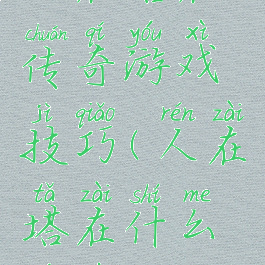 chuán qí yóu xì
传奇游戏
jì qiǎo rén zài
技巧(人在
tǎ zài shí me
塔在什么